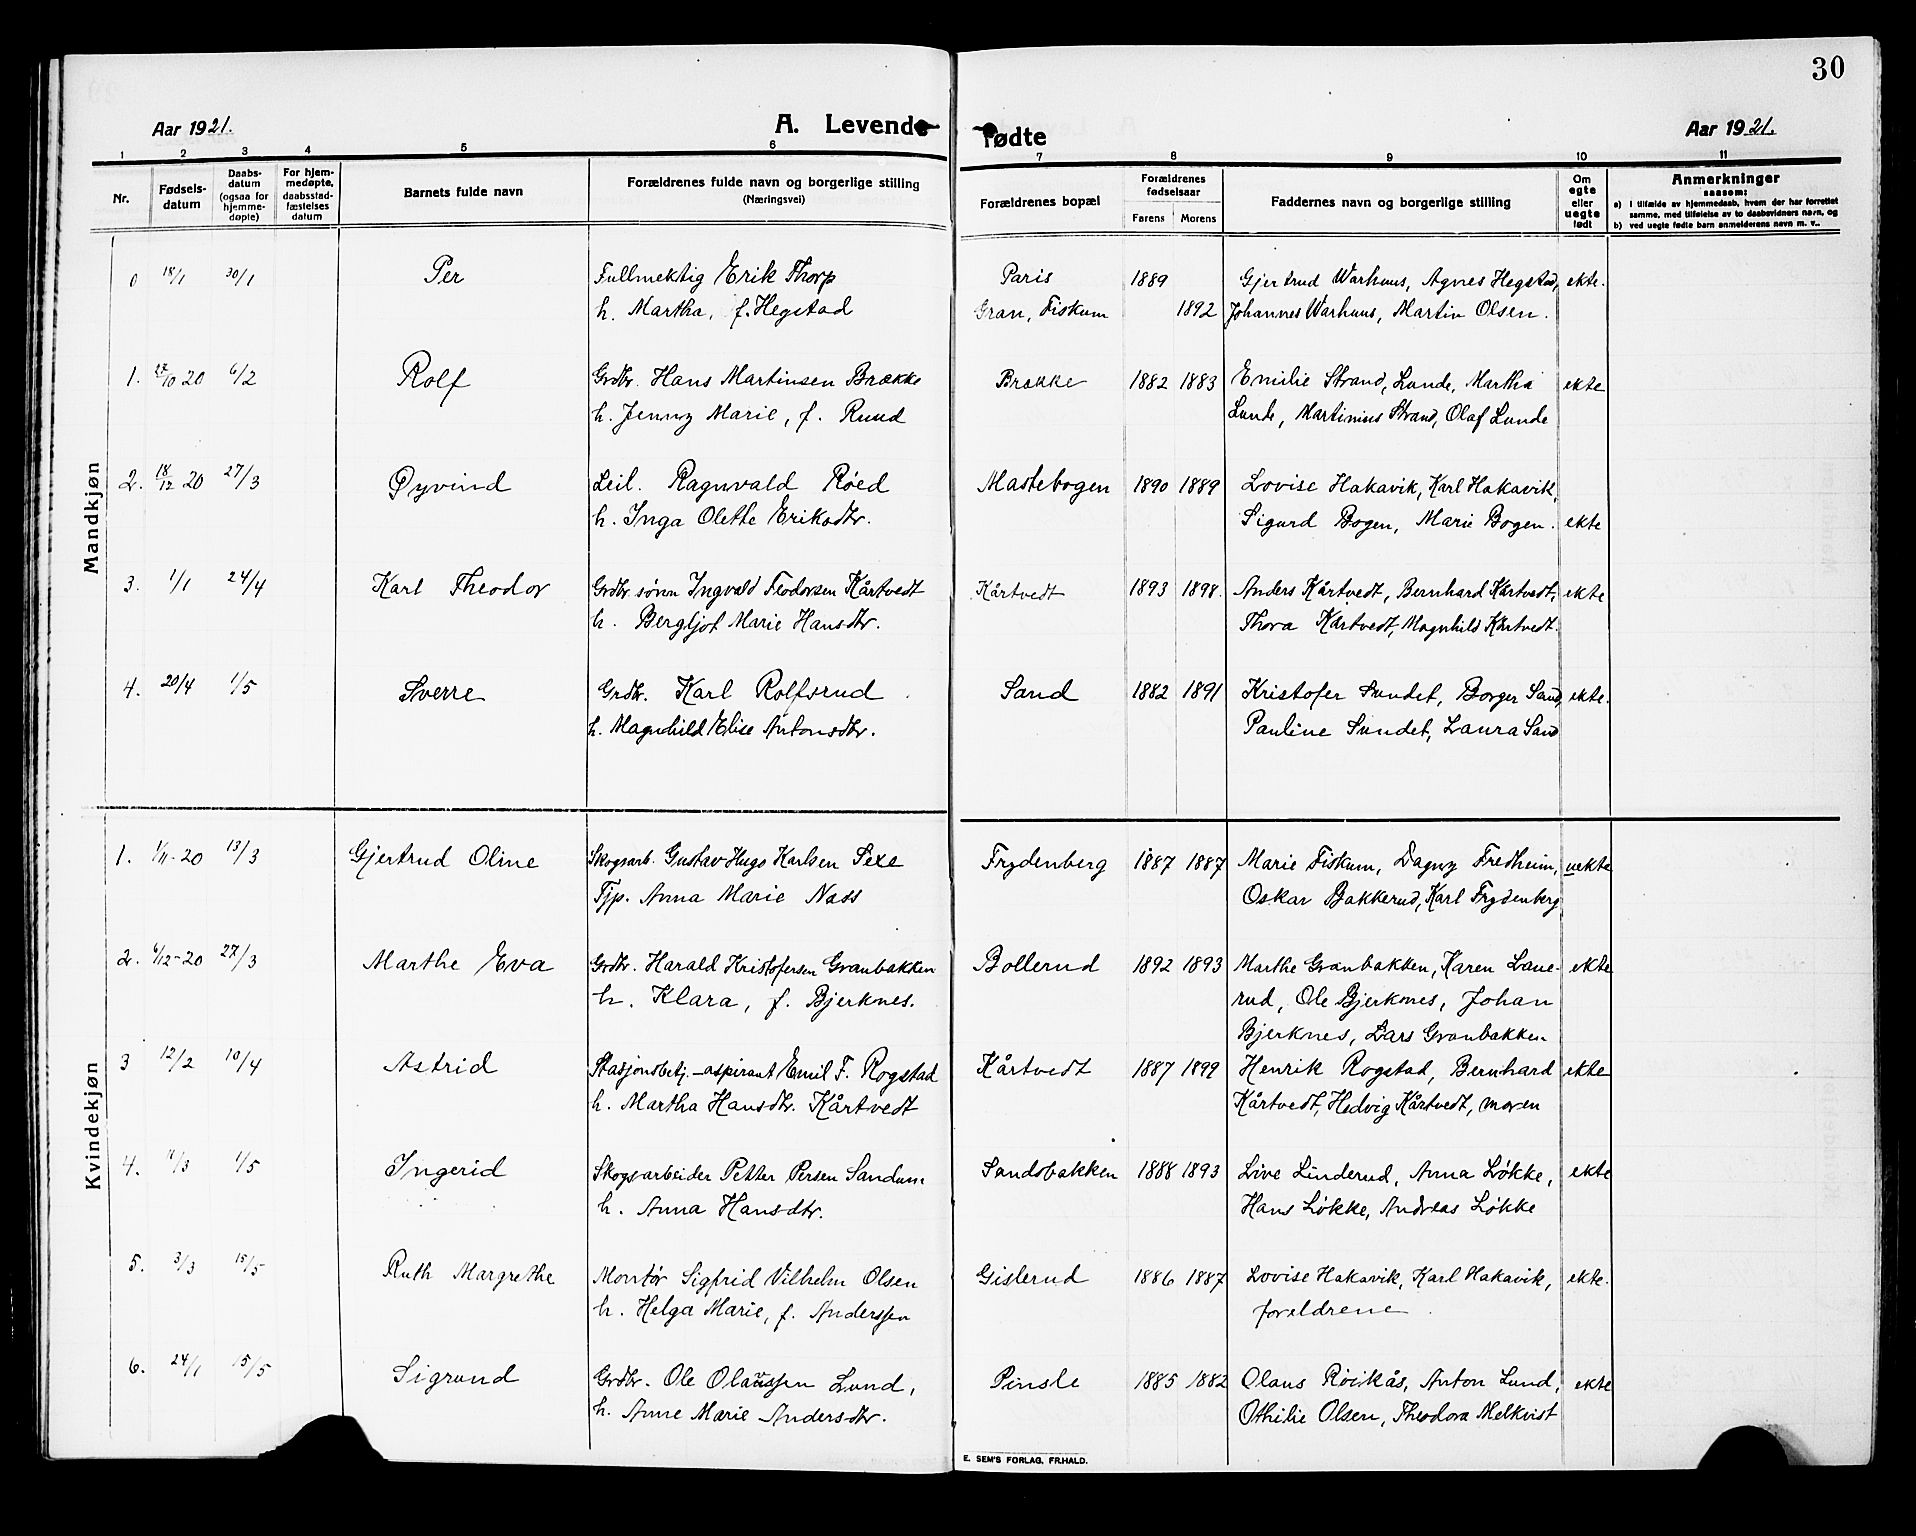 30
Aar 1921. A. Levende fødte Aar 1921.
1 2 3 4 5 6 7 8 9 10 11
Nr. Fødsels-datum Daabs-datum (ogsaa for hjemme-døpte) For hjem-medøpte, daabsstad-fæstelses datum Barnets fulde navn Forældrenes fulde navn og borgerlige stilling (Næringsvei) Forældrenes bopæl Forældrenes fødselsaar Farens Morens Faddernes navn og borgerlige stilling Om egte eller uegte født Anmerkninger saasom:
a) i tilfælde av hjemmedaab, hvem der har forrettet samme, med tilføielse av to daabsvidners navn, og
b) ved uegte fødte barn anmelderens navn m. v..
Mandkjøn
0 18/1 30/1 Per Fullmektig Erik Thorp Paris 1889 Gjertrud Warhuus, Agnes Hegstad, ekte.
h. Martha, f. Hegstad Gran, Fiskum 1892 Johannes Warhuus, Martin Olsen.
1. 27/10 20 6/2 Rolf Grdbr. Hans Martinsen Brække Brække 1882 1883 Emilie Strand, Lunde, Martha ekte
h. Jenny Marie, f. Ruud Lunde, Martinius Strand, Olaf Lunde
2. 18/12 20 27/3 Øyvind Leil. Ragnvald Røed Mastebogen 1890 1889 Lovise Hakavik, Karl Hakavik,
h. Inga Olethe Eriksdtr. Sigurd Bogen, Marie Bogen. ekte
3. 1/1 24/4 Karl Theodor Grdbr. sønn Ingvald Teodorsen Kårtvedt Kårtvedt 1893 1898. Anders Kårtvedt, Bernhard Kårtvedt, ekte
h. Bergljot Marie Hansdtr. Thora Kårtvedt, Magnhild Kårtvedt.
4. 20/4 1/5 Sverre Grdbr. Karl Rolfsrud Sand 1882 1891 Kristofer Sundet, Borger Sand, ekte.
h. Magnhild Elise Antonsdtr. Pauline Sundet, Laura Sand
Kvindekjøn
1. 1/11-20 13/3 Gjertrud Oline Skogsarb. Gustav Hugo Karlsen Sexe Frydenberg 1887 1887 Marie Fiskum, Dagny Fredheim, uekte
Tjp. Anna Marie Næss Oskar Bakkerud, Karl Frydenberg
2. 6/12-20 27/3 Marthe Eva Grdbr. Harald Kristofersen Granbakken Bollerud 1892 1893 Marthe Granbakken, Karen Laue- ekte
h. Klara, f. Bjerknes. rud, Ole Bjerknes, Johan
Bjerknes, Lars Granbakken
3 12/2 10/4 Astrid Stasjonsbetj.-aspirant Emil F. Rogstad Kårtvedt 1887 1899 Henrik Rogstad, Bernhard ekte
h. Martha Hansdtr. Kårtvedt Kårtvedt, Hedvig Kårtvedt, moren
4. /3 1/5 Ingerid Skogsarbeider Petter Persen Sandum Sandsbakken 1888 1893 Live Linderud, Anna Løkke, ekte
h. Anna Hansdtr. Hans Løkke, Andreas Løkke
5. 3/3 15/5 Ruth Margrethe Montør Sigfrid Vilhelm Olsen Gislerud 1886 1887 Lovise Hakavik, Karl Hakavik, ekte.
h. Helga Marie, f. Anderssen foreldrene.
6. 24/1 15/5 Sigrund Grdbr. Ole Olaussen Lund, Pinsle 1885 1882 Olaus Røikås, Anton Lund, ekte
h. Anne Marie Andersdtr. Othilie Olsen, Theodora Melkvist
E. SEM'S FORLAG, FR.HALD.